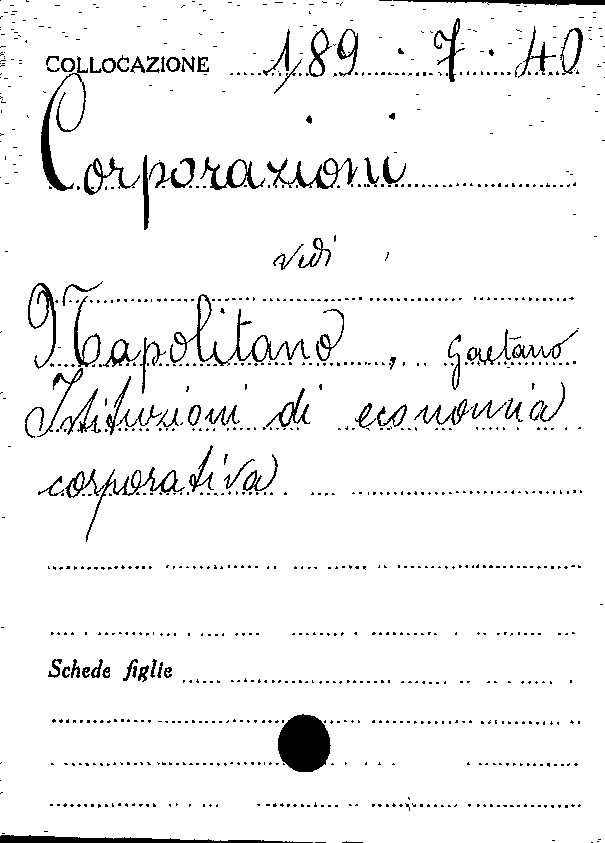 COLLOCAZIONE 189.7.40
Corporazioni
vedi
Napolitano, Gaetano
Istituzioni di economia
corporativa
Schede figlie